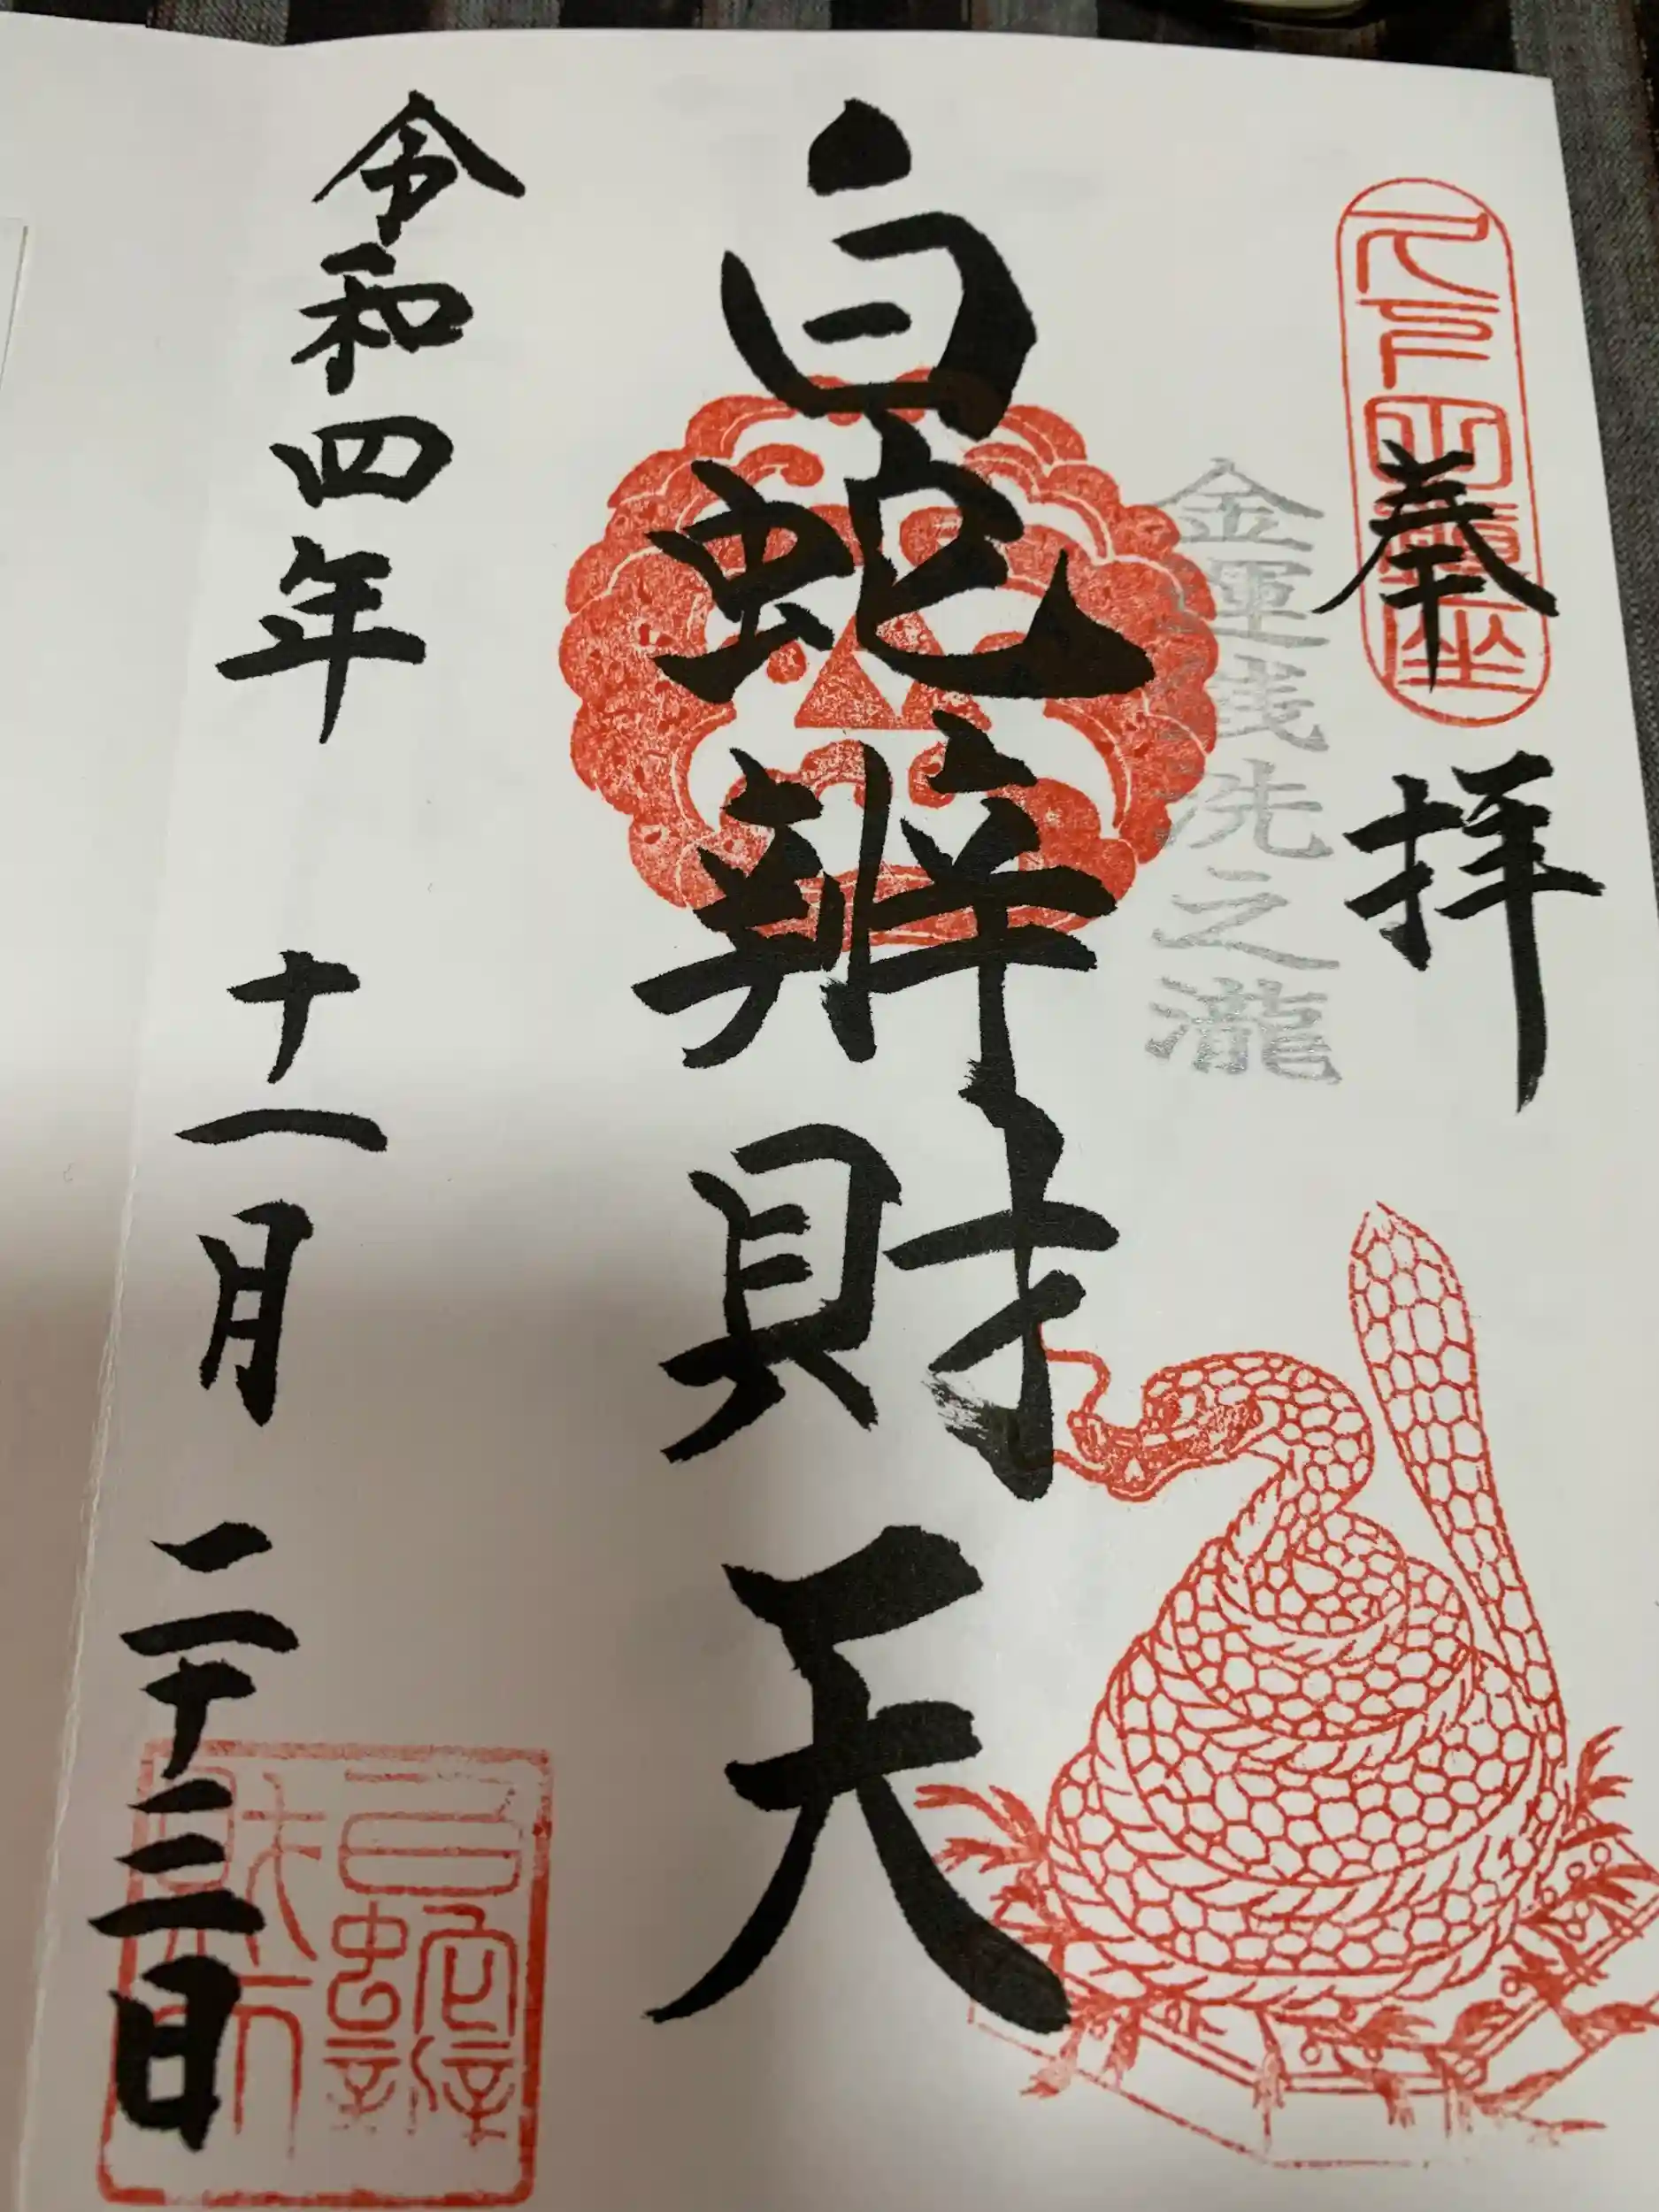 奉拝
金運銭洗之瀧
白蛇辨財天
令和四年 十一月 二十三日
白蛇辨財天